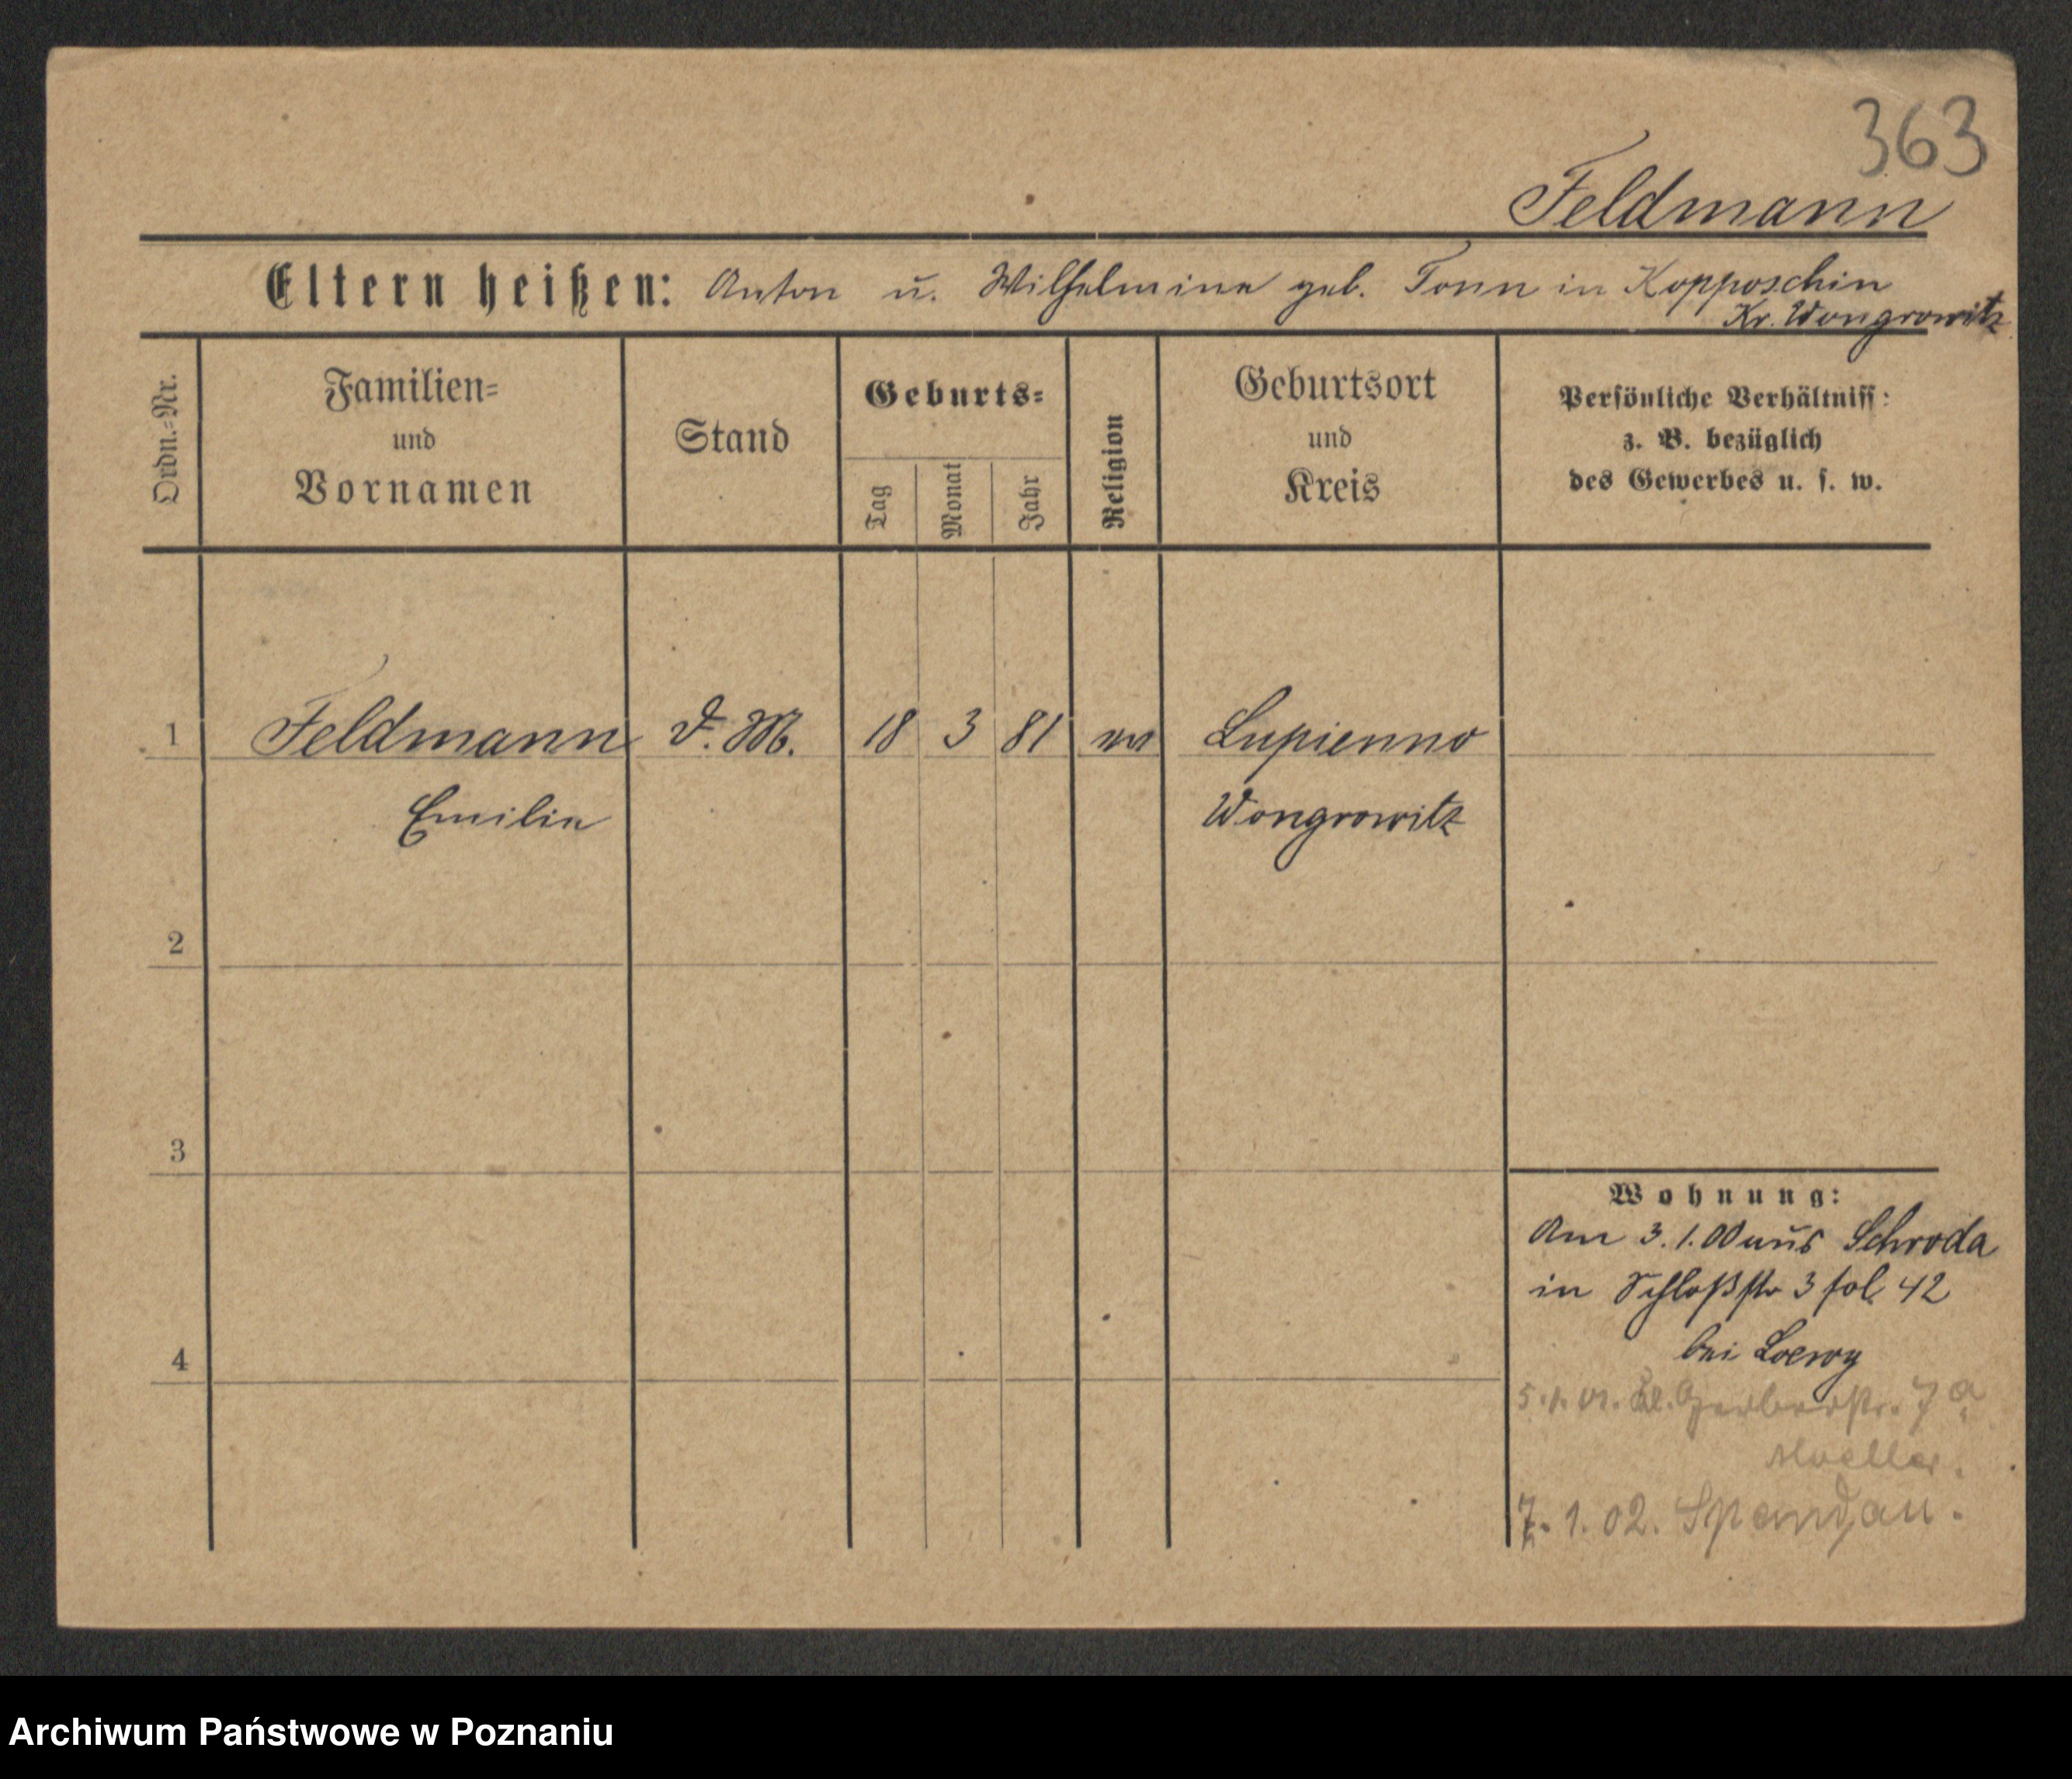 363
Feldmann
Eltern heißen: Anton u. Wilhelmine geb. Tonn in Kopposchin
Kr. Wongrowitz
Ordn.=Nr.
Familien=
und
Vornamen
Stand
Geburts=
Tag
Monat
Jahr
Religion
Geburtsort
und
Kreis
Persönliche Verhältniss:
z. B. bezüglich
des Gewerbes u. s. w.
1 Feldmann D. M. 18 3 81 ev Lupienno
Emilie Wongrowitz
2
3
4
Wohnung:
Am 3. 1. 00 aus Schroda
in Schloßstr 3 fol. 42
bei Loewy
5. 1. 01. Kl. Gerberstr. 7 a
Moeller.
7. 1. 02. Spandau.
Archiwum Państwowe w Poznaniu